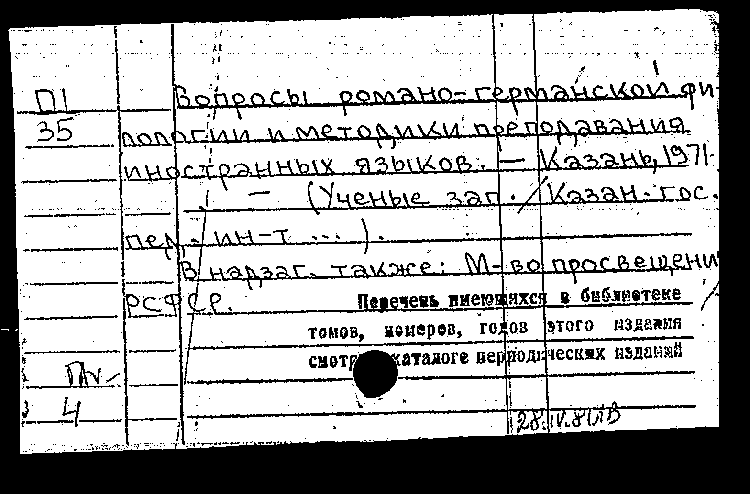 П1 Вопросы романо-германской фи-
35 лологии и методики преподавания
иностранных языков. — Казань, 1971-
— (Ученые зап. / Казан. гос.
пед. ин-т ... ).
В надзаг. также: М-во просвещени
РСФСР.
Перечень имеющихся в библиотеке
томов, номеров, годов этого издания
смотр каталоге периодических изданий
4
28.IV.81